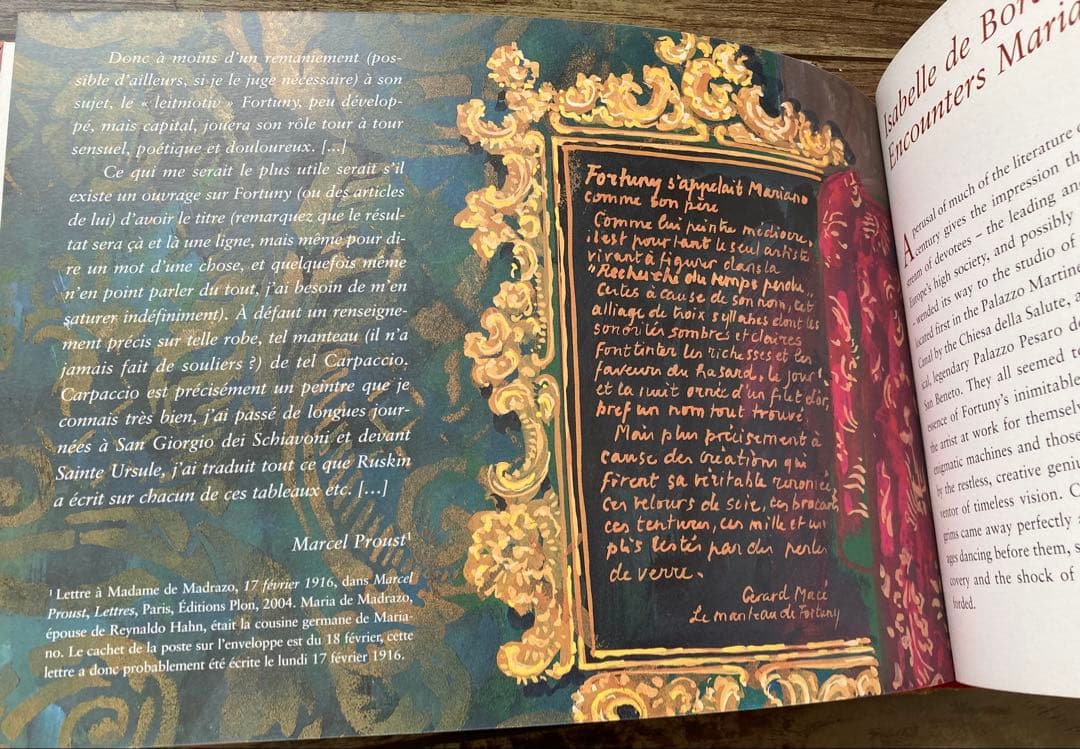 Donc à moins d'un remaniement (pos-
sible d'ailleurs, si je le juge nécessaire) à son
sujet, le « leitmotiv » Fortuny, peu dévelop-
pé, mais capital, jouera son rôle tour à tour
sensuel, poétique et douloureux. [...]
Ce qui me serait le plus utile serait s'il
existe un ouvrage sur Fortuny (ou des articles
de lui) d'avoir le titre (remarquez que le résul-
tat sera çà et là une ligne, mais même pour di-
re un mot d'une chose, et quelquefois même
n'en point parler du tout, j'ai besoin de m'en
saturer indéfiniment). À défaut un renseigne-
ment précis sur telle robe, tel manteau (il n'a
jamais fait de souliers ?) de tel Carpaccio.
Carpaccio est précisément un peintre que je
connais très bien, j'ai passé de longues jour-
nées à San Giorgio dei Schiavoni et devant
Sainte Ursule, j'ai traduit tout ce que Ruskin
a écrit sur chacun de ces tableaux etc. [...]
Marcel Proust¹
¹ Lettre à Madame de Madrazo, 17 février 1916, dans Marcel
Proust, Lettres, Paris, Éditions Plon, 2004. Maria de Madrazo,
épouse de Reynaldo Hahn, était la cousine germane de Maria-
no. Le cachet de la poste sur l'enveloppe est du 18 février, cette
lettre a donc probablement été écrite le lundi 17 février 1916.
Fortuny s'appelait Mariano
comme son père
Comme lui peintre médiocre,
il est pourtant le seul artiste
vivant à figurer dans la
"Recherche du temps perdu,
Certes à cause de son nom, cet
alliage de trois syllabes dont les
sonorités sombres et claires
font tinter les richesses et les
faveurs du hasard, le jour
et la nuit ornée d'un filet d'or,
bref un nom tout trouvé.
Mais plus précisément à
cause des créations qui
firent sa véritable renommée
ces velours de soie, ces brocarts
ces tentures, ces mille et un
plis lestés par des perles
de verre.
Gérard Macé
Le manteau de Fortuny
Isabelle de Bor
Encounters Maria
A perusal of much of the literature
century gives the impression th
stream of devotees – the leading an
Europe's high society, and possibly
– wended its way to the studio of
located first in the Palazzo Martin
Canal by the Chiesa della Salute, a
cal, legendary Palazzo Pesaro de
San Beneto. They all seemed to
essence of Fortuny's inimitable
the artist at work for themselv
enigmatic machines and those
by the restless, creative geni
ventor of timeless vision. C
grims came away perfectly
ages dancing before them, s
covery and the shock of
forded.